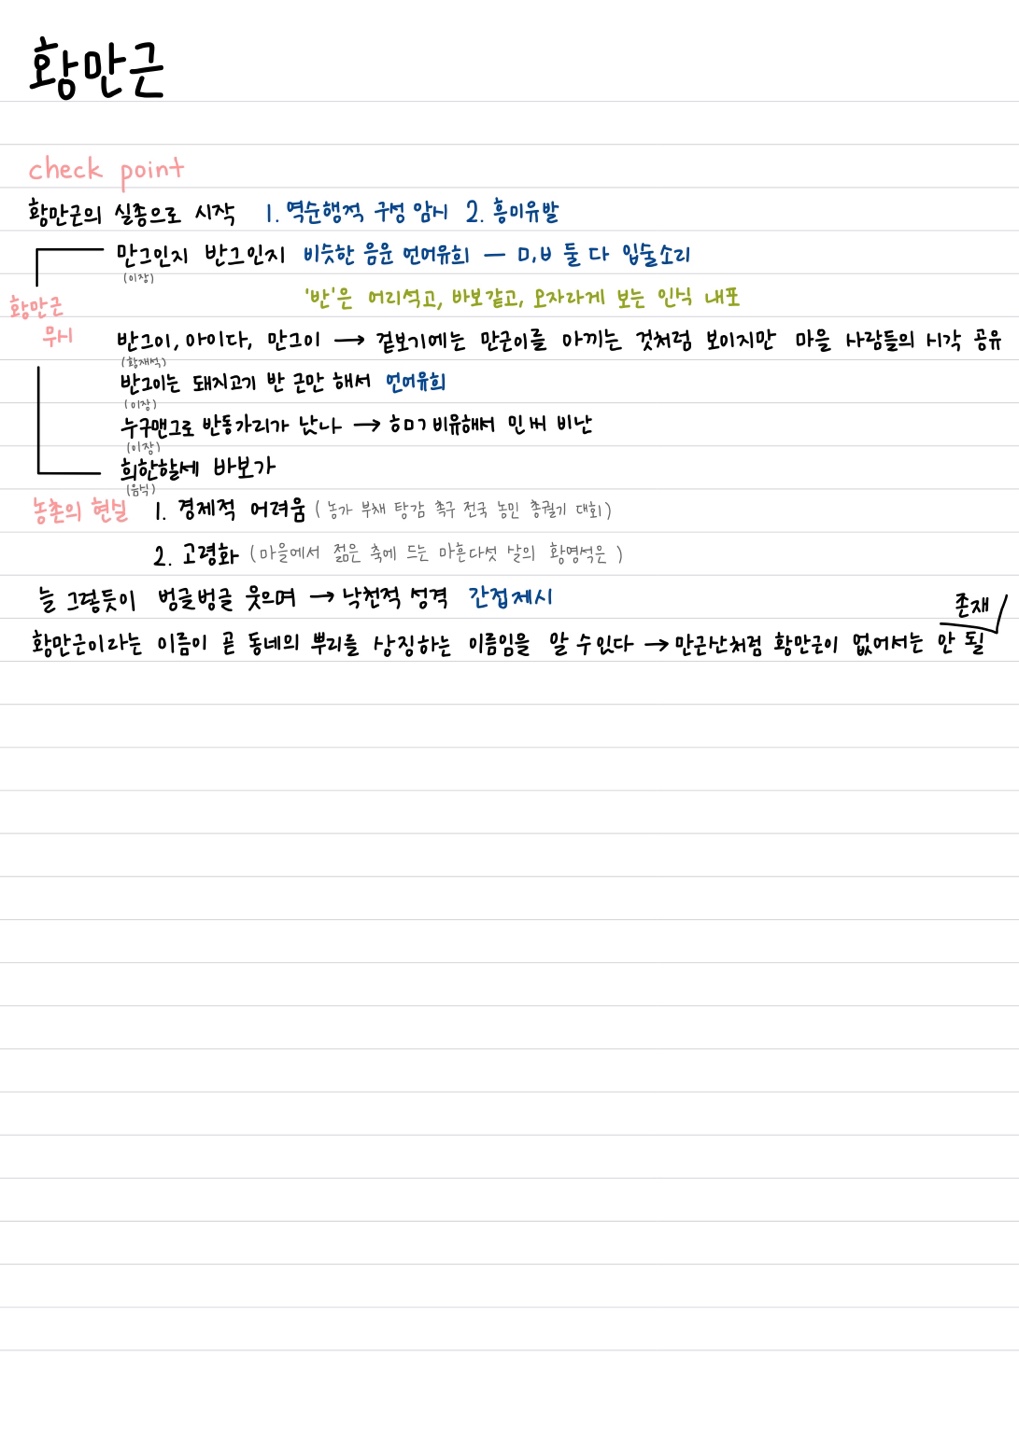 황만근
check point
황만근의 실종으로 시작 1. 역순행적 구성 암시 2. 흥미유발
만그인지 반그인지 비슷한 음운 언어유희 — ㅁ,ㅂ 둘 다 입술소리
(이장)
'반'은 어리석고, 바보같고, 모자라게 보는 인식 내포
황만근
무시
반그이, 아이다, 만그이 → 겉보기에는 만근이를 아끼는 것처럼 보이지만 마을 사람들의 시각 공유
(황재석)
반그이는 돼지고기 반 근만 해서 언어유희
(이장)
누구맨그로 반동가리가 났나 → 비유해서 비난
(이장)
희한할세 바보가
(음식)
농촌의 현실 1. 경제적 어려움 (농가 부채 탕감 촉구 전국 농민 총궐기 대회)
2. 고령화 (마을에서 젊은 축에 드는 마흔다섯 살의 황영석은)
늘 그렇듯이 벙글벙글 웃으며 → 낙천적 성격 간접제시
황만근이라는 이름이 곧 동네의 뿌리를 상징하는 이름임을 알 수 있다 → 만근산처럼 황만근이 없어서는 안 될
존재